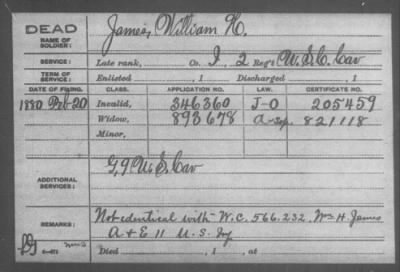 DEAD
NAME OF SOLDIER: James, William H.
SERVICE: Late rank, Co. I, 2 Reg't U.S.C. Cav
TERM OF SERVICE: Enlisted , 1 Discharged , 1
DATE OF FILING. CLASS. APPLICATION NO. LAW. CERTIFICATE NO.
1880 Feb-20 Invalid, 346360 J-O 205459
Widow, 893678 821118
Minor,
ADDITIONAL SERVICES: G, 9 U.S. Cav
REMARKS: Not identical with W.C. 566.232. Wm H. James
A & E 11 U.S. Inf
Died , 1 , at